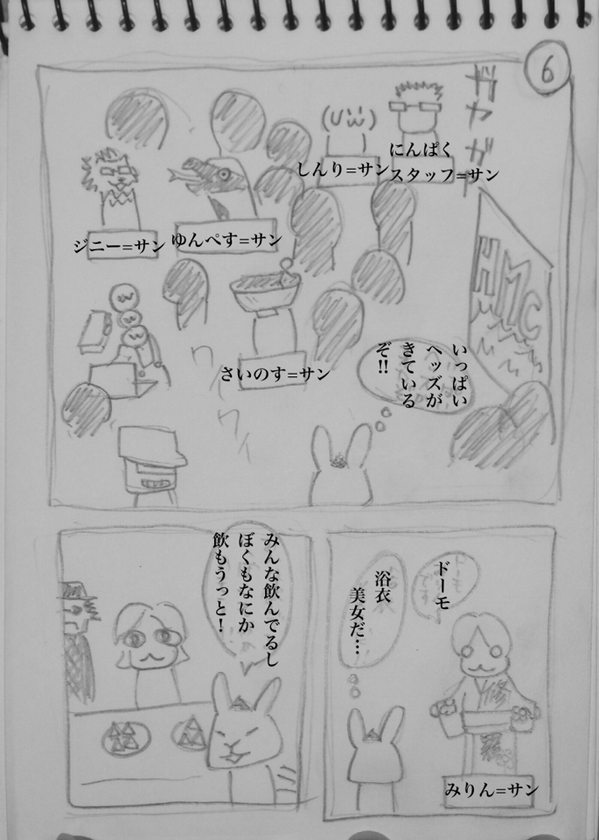 6
ギャザ
(Uω)
にんぱく
スタッフ=サン
しんり=サン
ゆんぺす=サン
ジニー=サン
HMC
いっぱい
ヘッズが
きている
ぞ!!
さいのす=サン
ワイ
ワイ
ドーモ
浴衣
美女だ…
修
羅
みりん=サン
みんな飲んでるし
ぼくもなにか
飲もうっと!